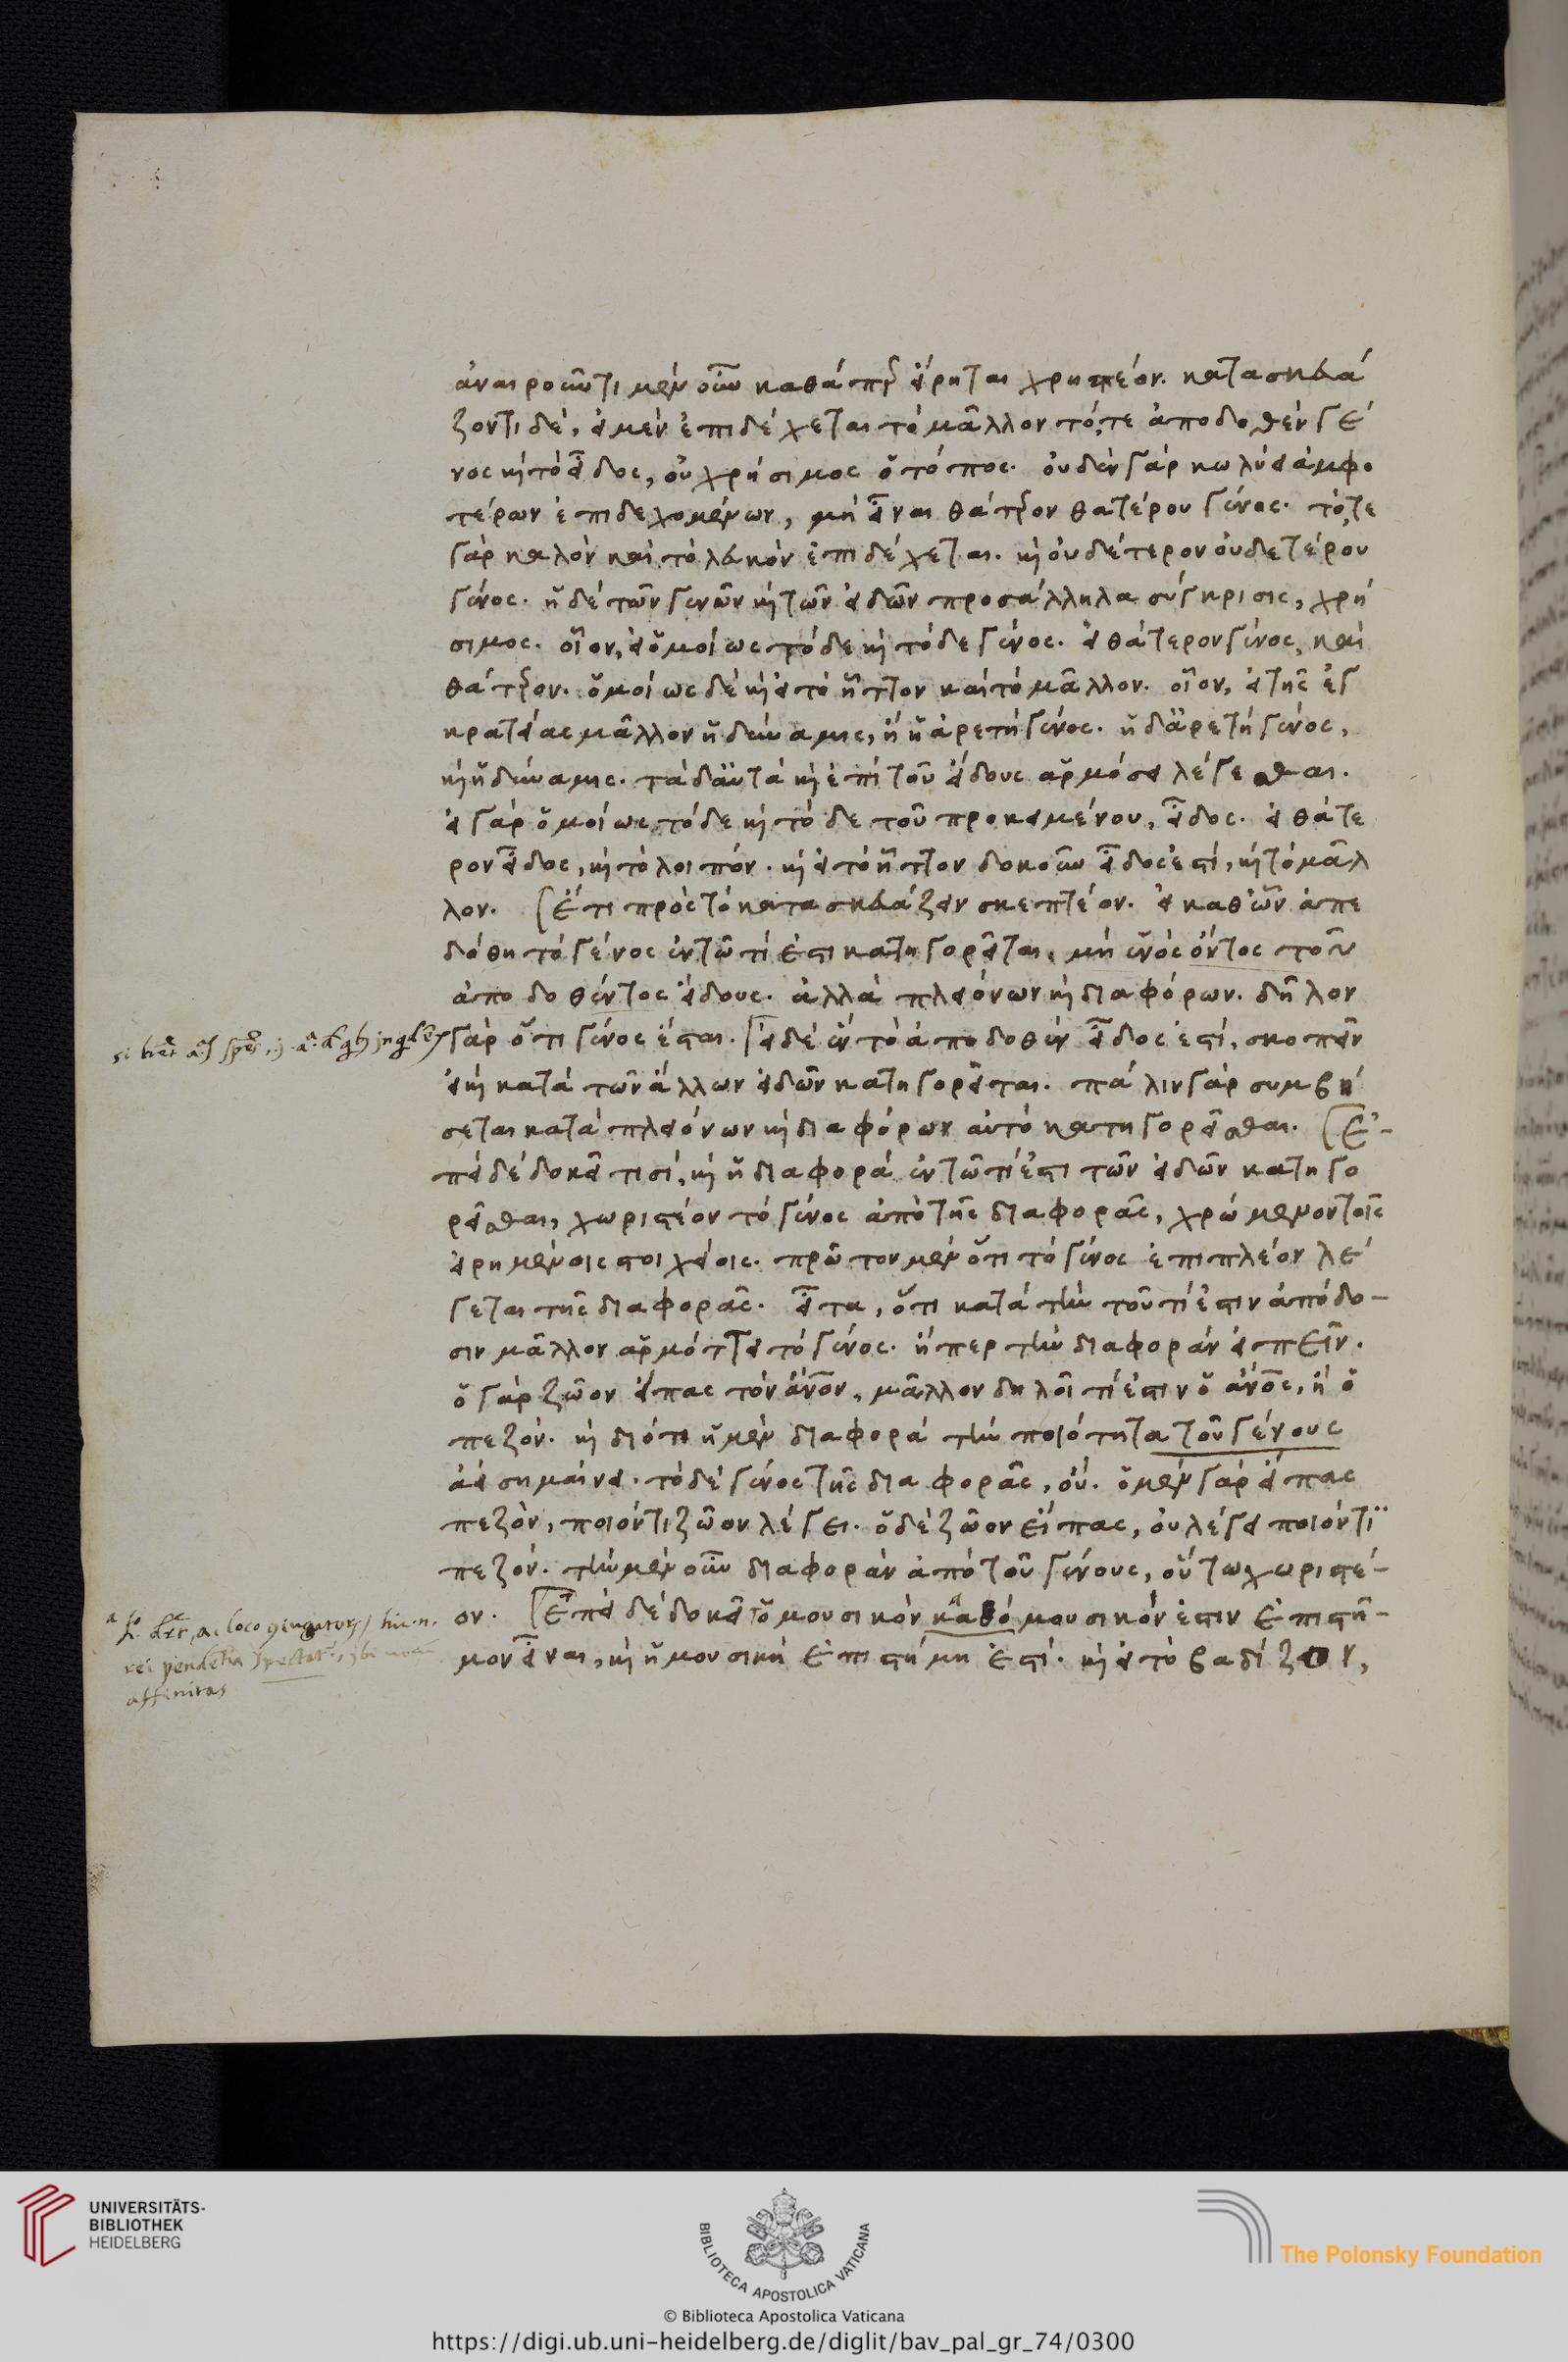 ἀναιροῦντι μὲν οὖν καθάπερ εἴρηται χρηστέον. κατασκευά
ζοντι δὲ, εἰ μὲν ἐπιδέχεται τὸ μᾶλλον τό, τε ἀποδοθὲν γέ
νος καὶ τὸ εἶδος, οὐ χρήσιμος ὁ τόπος. οὐδὲν γὰρ κωλύει ἀμφο
τέρων ἐπιδεχομένων, μὴ εἶναι θάτερον θατέρου γένος. τό, τε
γὰρ καλὸν καὶ τὸ λευκὸν ἐπιδέχεται. καὶ οὐδέτερον οὐδετέρου
γένος. ἡ δὲ τῶν γενῶν καὶ τῶν εἰδῶν προσάλληλα σύγκρισις, χρή
σιμος. οἷον, εἰ ὁμοίως τόδε καὶ τόδε γένος. εἰ θάτερον γένος, καὶ
θάτερον. ὁμοίως δὲ καὶ εἰ τὸ ἧττον καὶ τὸ μᾶλλον. οἷον, εἰ τῆς ἐγ
κρατείας μᾶλλον ἡ δύναμις, ἢ ἡ ἀρετὴ γένος. ἡ δ' ἀρετὴ γένος,
καὶ ἡ δύναμις. τὰ δ' αὐτὰ καὶ ἐπὶ τοῦ εἴδους ἁρμόσει λέγεσθαι.
εἰ γὰρ ὁμοίως τόδε καὶ τόδε τοῦ προκειμένου, εἶδος. εἰ θάτε
ρον εἶδος, καὶ τὸ λοιπόν. καὶ εἰ τὸ ἧττον δοκοῦν εἶδος ἐστὶ, καὶ τὸ μᾶλ
λον. [Ἔτι πρὸς τὸ κατασκευάζειν σκεπτέον. εἰ καθ' ὧν ἀπε
δόθη τὸ γένος ἐν τῷ τί ἐστι κατηγορεῖται, μὴ ἑνὸς ὄντος τοῦ
ἀποδοθέντος εἴδους. ἀλλὰ πλειόνων καὶ διαφόρων. δῆλον
γὰρ ὅτι γένος ἔσται. [εἰ δὲ ἓν τὸ ἀποδοθὲν εἶδος ἐστὶ, σκοπεῖν
εἰ καὶ κατὰ τῶν ἄλλων εἰδῶν κατηγορεῖται. πάλιν γὰρ συμβή
σεται κατὰ πλειόνων καὶ διαφόρων αὐτὸ κατηγορεῖσθαι. [Ἐ-
πεὶ δὲ δοκεῖ τισὶ, καὶ ἡ διαφορὰ ἐν τῷ τί ἐστι τῶν εἰδῶν κατηγο
ρεῖσθαι, χωριστέον τὸ γένος ἀπὸ τῆς διαφορᾶς, χρώμενον τοῖς
εἰρημένοις στοιχείοις. πρῶτον μὲν ὅτι τὸ γένος ἐπιπλέον λέ
γεται τῆς διαφορᾶς. εἶτα, ὅτι κατὰ τὴν τοῦ τί ἐστιν ἀπόδο-
σιν μᾶλλον ἁρμόττει τὸ γένος. ἤπερ τὴν διαφορὰν εἰπεῖν.
ὁ γὰρ ζῷον εἴπας τὸν ἄνον, μᾶλλον δηλοῖ τί ἐστιν ὁ ἄνος, ἢ ὁ
πεζόν. καὶ διότι ἡ μὲν διαφορὰ τὴν ποιότητα τοῦ γένους
ἀεὶ σημαίνει. τὸ δὲ γένος τῆς διαφορᾶς, οὔ. ὁ μὲν γὰρ εἴπας
πεζὸν, ποιόν τι ζῷον λέγει. ὁ δὲ ζῷον εἴπας, οὐ λέγει ποιόν τι
πεζόν. τὴν μὲν οὖν διαφορὰν ἀπὸ τοῦ γένους, οὕτω χωριστέ-
ον. [Ἐπεὶ δὲ δοκεῖ τὸ μουσικὸν καθὸ μουσικόν ἐστιν ἐπιστῆ-
μον εἶναι, καὶ ἡ μουσικὴ ἐπιστήμη ἐστί. καὶ εἰ τὸ βαδίζον,
ac loco
affinitas
UNIVERSITÄTS-
BIBLIOTHEK
HEIDELBERG
BIBLIOTECA APOSTOLICA VATICANA
The Polonsky Foundation
© Biblioteca Apostolica Vaticana
https://digi.ub.uni-heidelberg.de/diglit/bav_pal_gr_74/0300